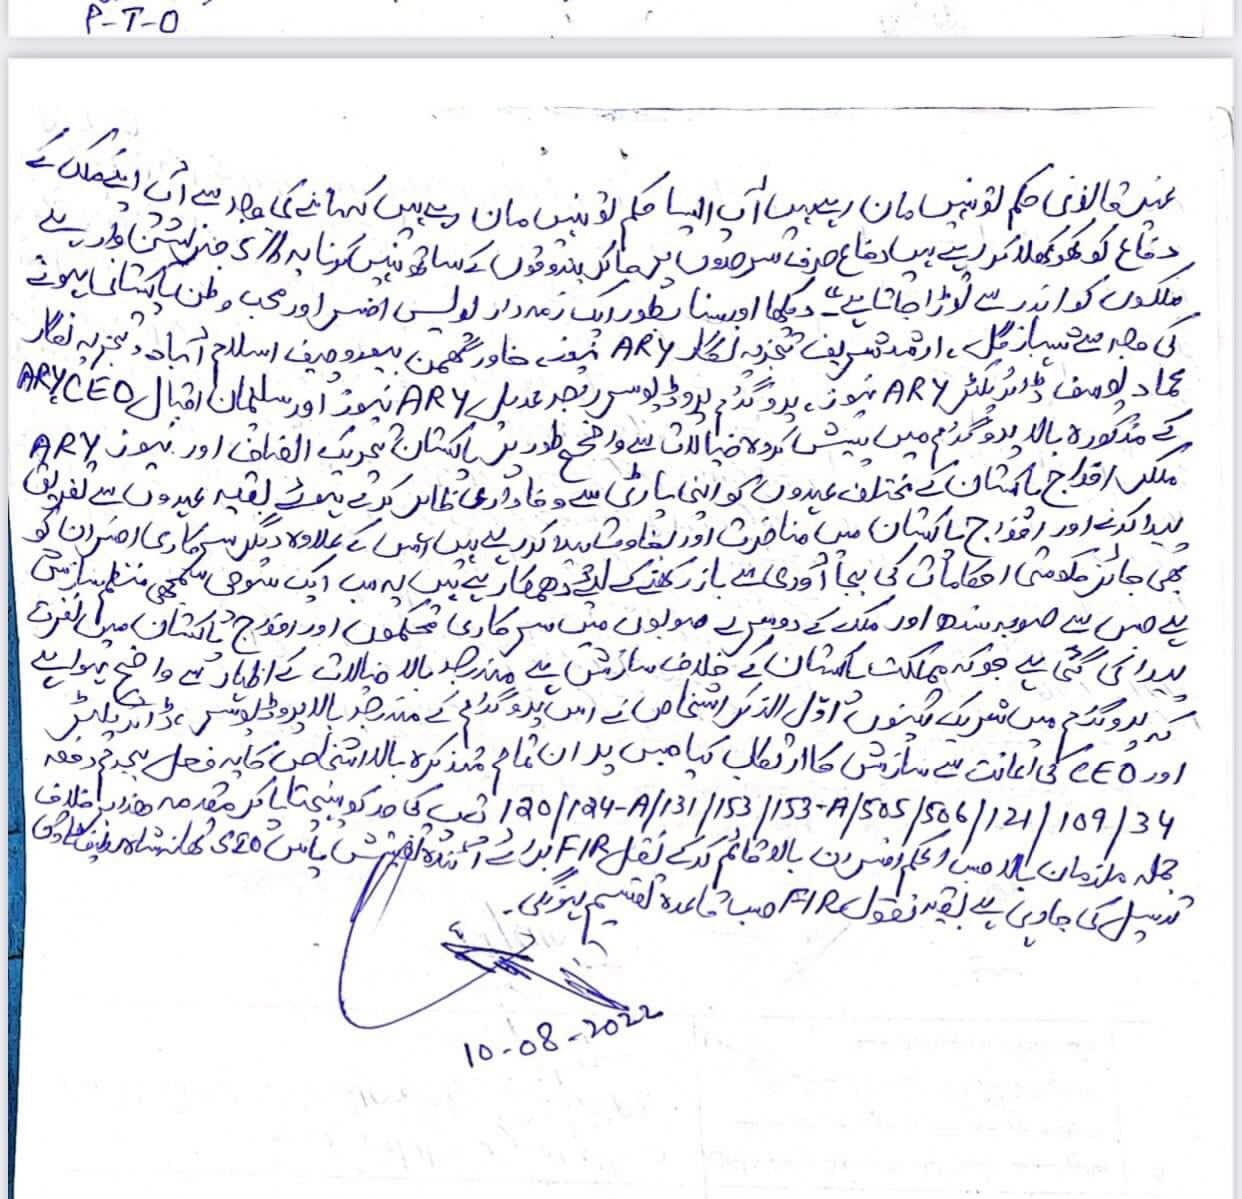 P-T-O
غیر قانونی حکم تو نہیں مان رہے ہیں آپ ایسا حکم تو نہیں مان رہے ہیں کہ ماننے کی وجہ سے آپ اپنے ملک کے
دفاع کو کھوکھلا کر رہے ہیں دفاع صرف سرحدوں پر جا کر بندوقوں کے ساتھ نہیں ہوتا یہ 5th جنریشن وار ہے
ملکوں کو اندر سے توڑا جاتا ہے" دیکھا اور سنا بطور ایک ذمہ دار پولیس افسر اور محب وطن پاکستانی ہونے
کی وجہ سے شہباز گل، ارشد شریف تجزیہ نگار ARY نیوز، خاور گھمن بیورو چیف اسلام آباد و تجزیہ نگار
عماد یوسف ڈائریکٹر ARY نیوز، پروگرام پروڈیوسر عدیل ARY نیوز اور سلمان اقبال CEO ARY
کے مذکورہ بالا پروگرام میں پیش کردہ خیالات سے واضح طور پر پاکستان تحریک انصاف اور نیوز ARY
ملکر افواج پاکستان کے مختلف عہدوں کو اپنی پارٹی سے وفاداری ظاہر کرتے ہوئے بقیہ عہدوں سے تفریق
پیدا کرنے اور افواج پاکستان میں منافرت اور بغاوت پیدا کر رہے ہیں اس کے علاوہ دیگر سرکاری افسران کو
بھی جائز حکومتی احکامات کی بجا آوری سے باز رکھنے کے لئے دھمکا رہے ہیں یہ سب ایک سوچی سمجھی منظم سازش
ہے جس سے صوبہ سندھ اور ملک کے دوسرے صوبوں میں سرکاری محکموں اور افواج پاکستان میں نفرت
پیدا کی گئی ہے جو کہ مملکت پاکستان کے خلاف سازش ہے مندرجہ بالا خیالات کے اظہار سے واضح ہوا ہے
کہ پروگرام میں شریک تینوں اوّل الذکر اشخاص نے اس پروگرام کے مندرجہ بالا پروڈیوسر، ڈائریکٹر
اور CEO کی اعانت سے سازش کا ارتکاب کیا جس پر ان تمام متذکرہ بالا اشخاص کا یہ فعل بجرم دفعہ
120/124-A/131/153/153-A/505/506/121/109/34 تپ کی حد کو پہنچتا پا کر مقدمہ ھذا بر خلاف
جملہ ملزمان بالا حسب الحکم افسران بالا قائم کرکے نقل FIR برائے آئندہ تفتیش پاس SIO تھانہ
ترسیل کی جا رہی ہے بقیہ نقول FIR حسب قاعدہ تقسیم ہونگی۔
10-08-2022